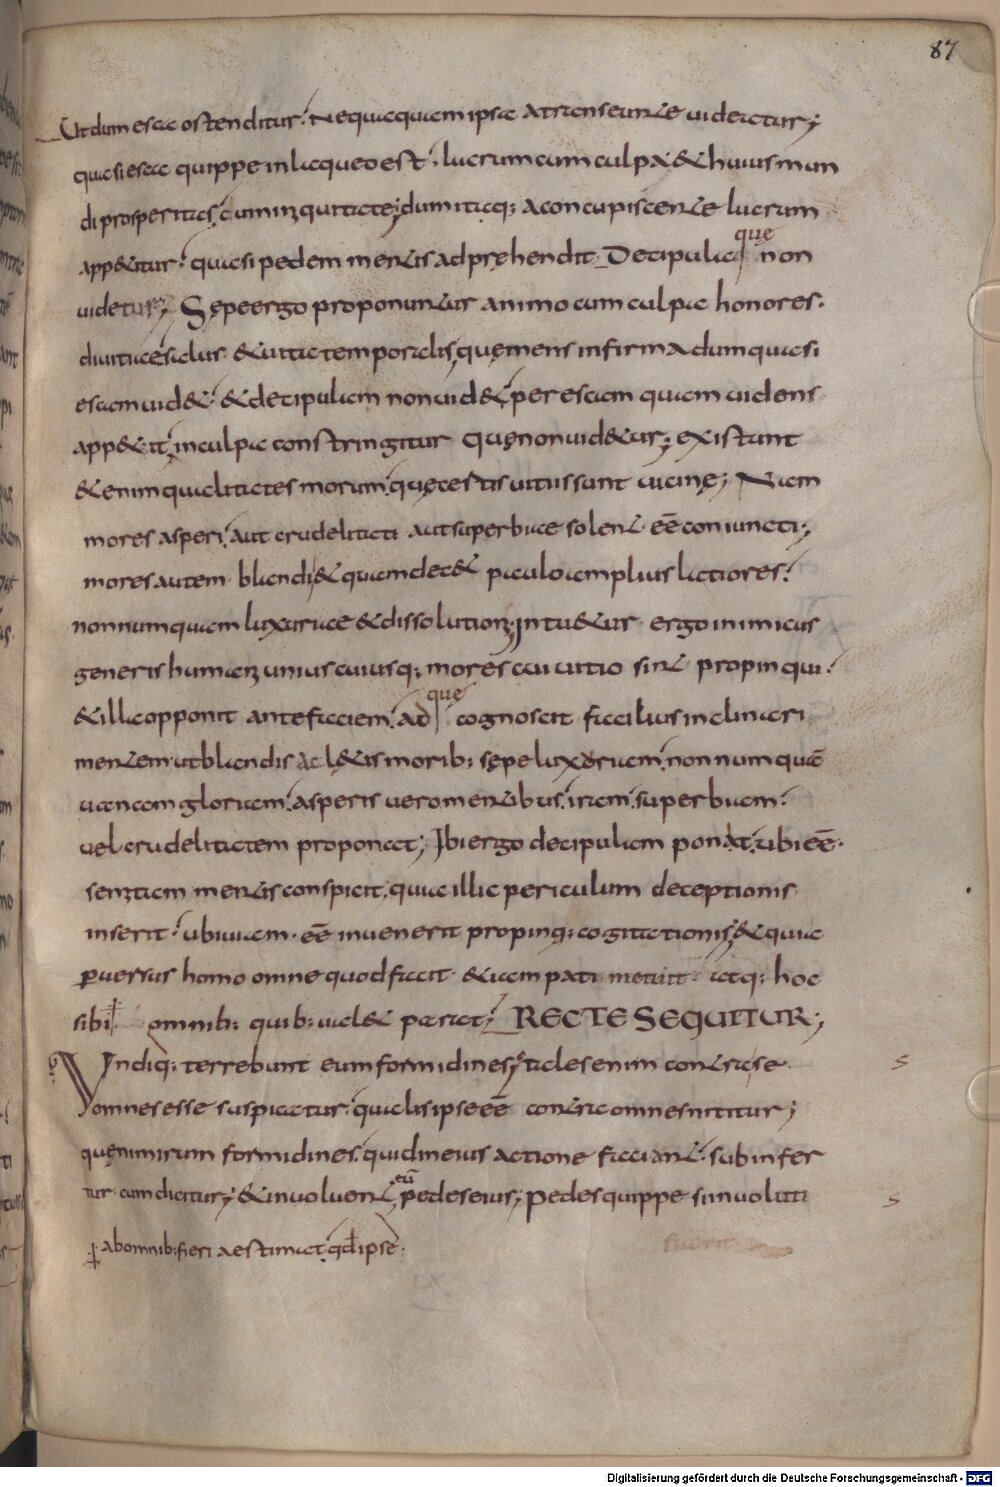 87
Ut dum esca ostenditur. Nequaquam ipsa a transeunte videatur;
quasi esca quippe in laqueo est. lucrum cum culpa. & huius mun
di prosperitas, cum iniquitate; dum itaq; a concupiscente lucrum
app&itur. quasi pedem mentis adprehendit. Decipula que non
videtur; Sępe ergo proponuntur animo cum culpa honores.
divitiae salus. & vita temporalis, quę mens infirma dum quasi
escam vid&. & decipulam non vid&. per escam quam videns
app&it, in culpa constringitur quę non vid&ur; existunt
&enim qualitates morum. quę certis vitiis sunt vicinę; Nam
mores asperi, aut crudelitati aut superbiae solent eē coniuncti;
mores autem blandi, & quam dec& paulo amplius laetiores.
nonnumquam luxuriae & dissolutioni; Intu&ur ergo inimicus
generis humani uniuscuiusq; mores cui vitio sint propinqui.
& illa opponit ante faciem. ad que cognoscit facilius inclinari
mentem. ut blandis ac l&is morib; sępe luxoriam, nonnumquā
vanam gloriam, asperis vero mentibus, iram, superbiam.
vel crudelitatem proponat; Ibi ergo decipulam ponat. ubi eē.
semitam mentis conspicit. quia illic periculum deceptionis
inserit. ubi viam. eē invenerit propinq; cogitationis; & quia
perversus homo omne quod facit. &iam pati metuit. atq; hoc
sibi omnib; quib; val& pariat; RECTE SEQUITUR;
Undiq; terrebunt eum formidines; tales enim contra se
omnes esse suspicatur. qualis ipse eē contra omnes nititur;
quę nimirum formidines. quid in eius actione faciant. subinfer
tur cum dicitur; & involvent pedes eius; pedes quippe si involuti
eū
ab omnib; fieri aestimat. qđ ipse.
fuerit
Digitalisierung gefördert durch die Deutsche Forschungsgemeinschaft - DFG